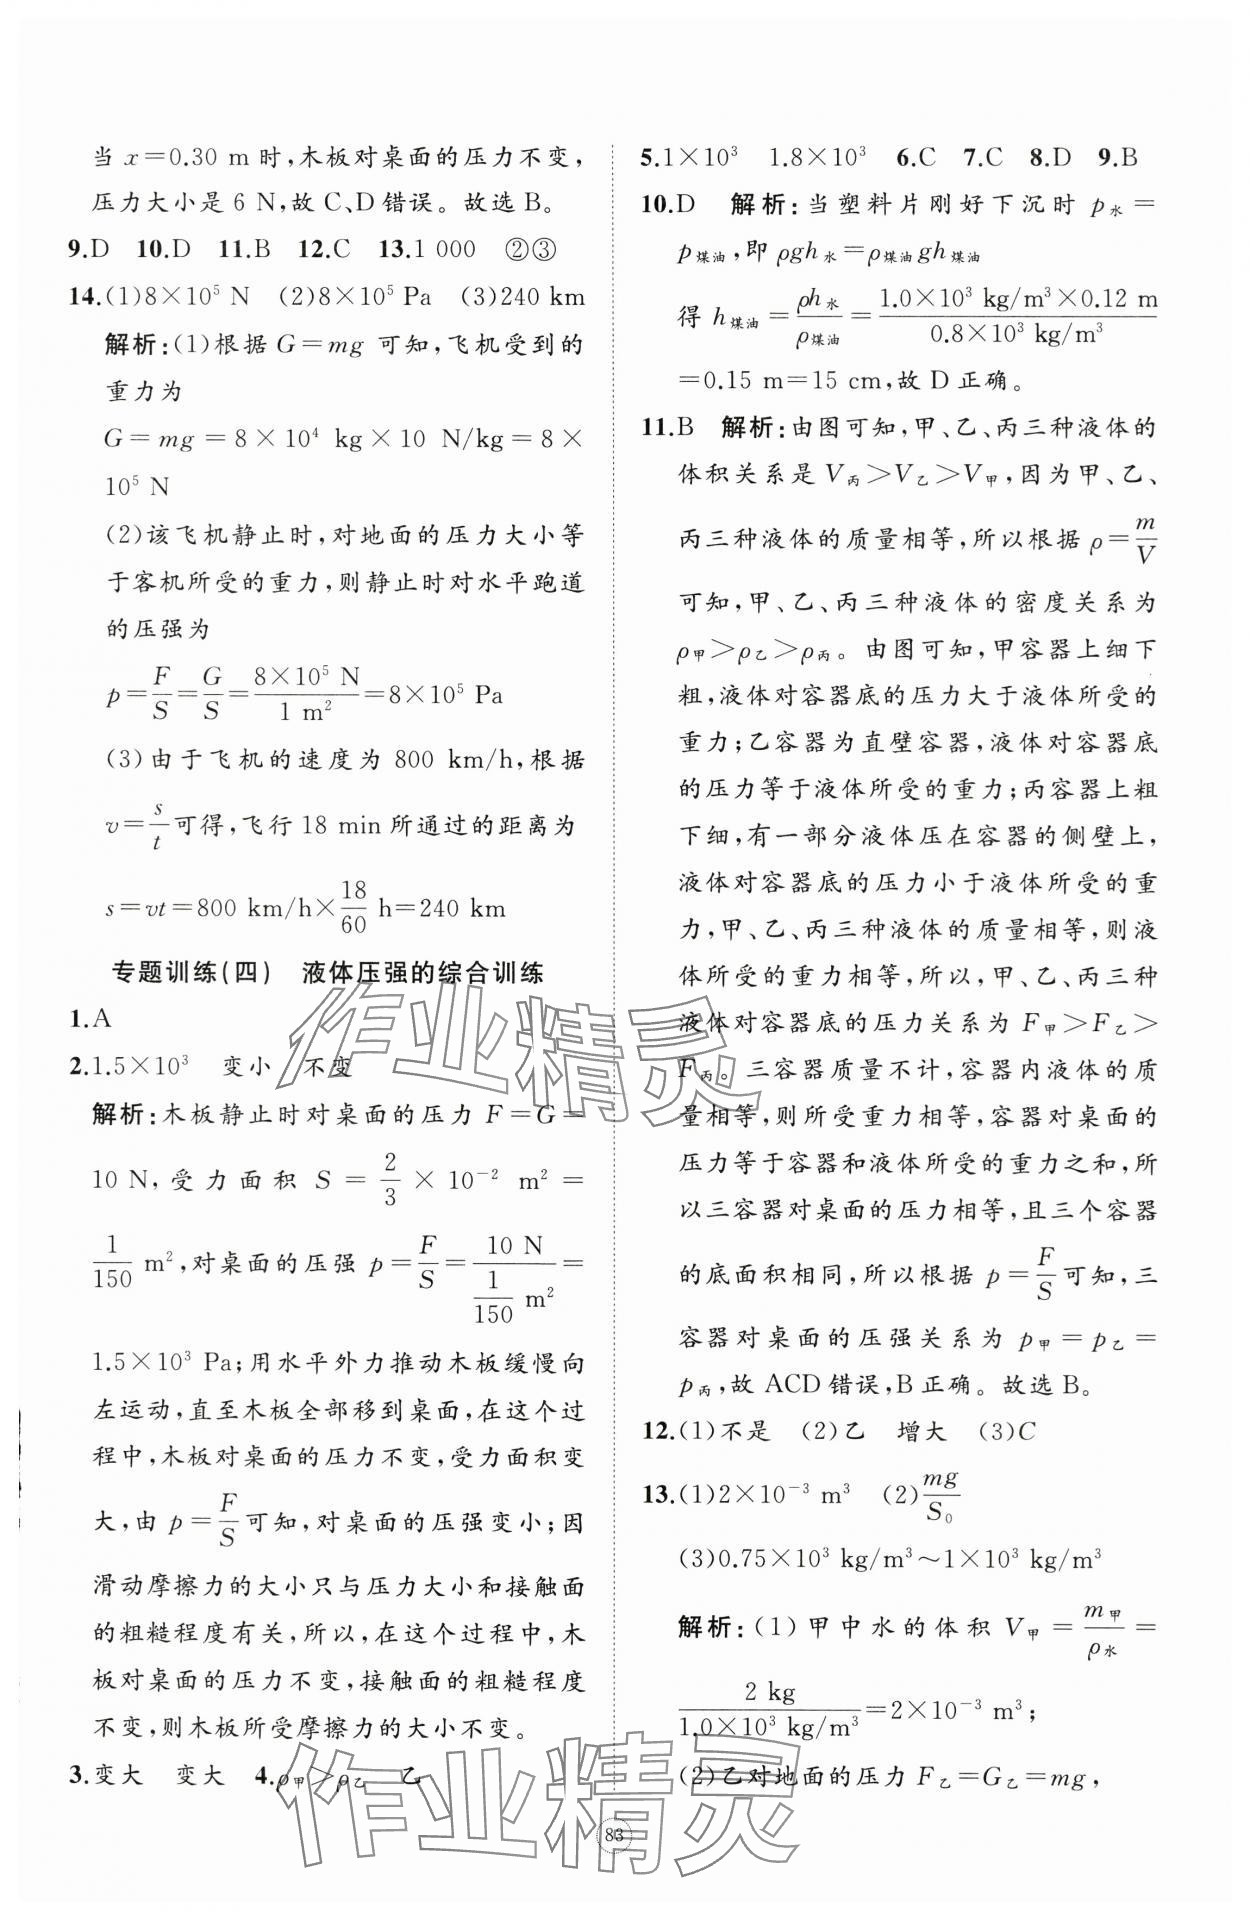 当 x=0.30 m时,木板对桌面的压力不变,
压力大小是 6 N,故 C、D 错误。故选 B。
9.D 10.D 11.B 12.C 13.1 000 ②③
14.(1)8×10⁵ N (2)8×10⁵ Pa (3)240 km
解析:(1)根据 G=mg 可知,飞机受到的
重力为
G=mg=8×10⁴ kg×10 N/kg=8×
10⁵ N
(2)该飞机静止时,对地面的压力大小等
于客机所受的重力,则静止时对水平跑道
的压强为
p=F/S=G/S=8×10⁵ N/1 m²=8×10⁵ Pa
(3)由于飞机的速度为 800 km/h,根据
v=s/t可得,飞行 18 min 所通过的距离为
s=vt=800 km/h×18/60 h=240 km
专题训练(四) 液体压强的综合训练
1.A
2.1.5×10³ 变小 不变
解析:木板静止时对桌面的压力 F=G=
10 N,受力面积 S=2/3×10⁻² m²=
1/150 m²,对桌面的压强 p=F/S=10 N/(1/150 m²)=
1.5×10³ Pa;用水平外力推动木板缓慢向
左运动,直至木板全部移到桌面,在这个过
程中,木板对桌面的压力不变,受力面积变
大,由 p=F/S可知,对桌面的压强变小;因
滑动摩擦力的大小只与压力大小和接触面
的粗糙程度有关,所以,在这个过程中,木
板对桌面的压力不变,接触面的粗糙程度
不变,则木板所受摩擦力的大小不变。
3.变大 变大 4.ρ甲>ρ乙 乙
5.1×10³ 1.8×10³ 6.C 7.C 8.D 9.B
10.D 解析:当塑料片刚好下沉时 p水=
p煤油,即 ρgh水=ρ煤油gh煤油
得 h煤油=ρh水/ρ煤油=1.0×10³ kg/m³×0.12 m/0.8×10³ kg/m³
=0.15 m=15 cm,故 D 正确。
11.B 解析:由图可知,甲、乙、丙三种液体的
体积关系是 V丙>V乙>V甲,因为甲、乙、
丙三种液体的质量相等,所以根据 ρ=m/V
可知,甲、乙、丙三种液体的密度关系为
ρ甲>ρ乙>ρ丙。由图可知,甲容器上细下
粗,液体对容器底的压力大于液体所受的
重力;乙容器为直壁容器,液体对容器底
的压力等于液体所受的重力;丙容器上粗
下细,有一部分液体压在容器的侧壁上,
液体对容器底的压力小于液体所受的重
力,甲、乙、丙三种液体的质量相等,则液
体所受的重力相等,所以,甲、乙、丙三种
液体对容器底的压力关系为 F甲>F乙>
F丙。三容器质量不计,容器内液体的质
量相等,则所受重力相等,容器对桌面的
压力等于容器和液体所受的重力之和,所
以三容器对桌面的压力相等,且三个容器
的底面积相同,所以根据 p=F/S可知,三
容器对桌面的压强关系为 p甲=p乙=
p丙,故 ACD 错误,B 正确。故选 B。
12.(1)不是 (2)乙 增大 (3)C
13.(1)2×10⁻³ m³ (2)mg/S₀
(3)0.75×10³ kg/m³~1×10³ kg/m³
解析:(1)甲中水的体积 V甲=m甲/ρ水=
2 kg/1.0×10³ kg/m³=2×10⁻³ m³;
(2)乙对地面的压力 F乙=G乙=mg,
83
作业精灵
作业精灵